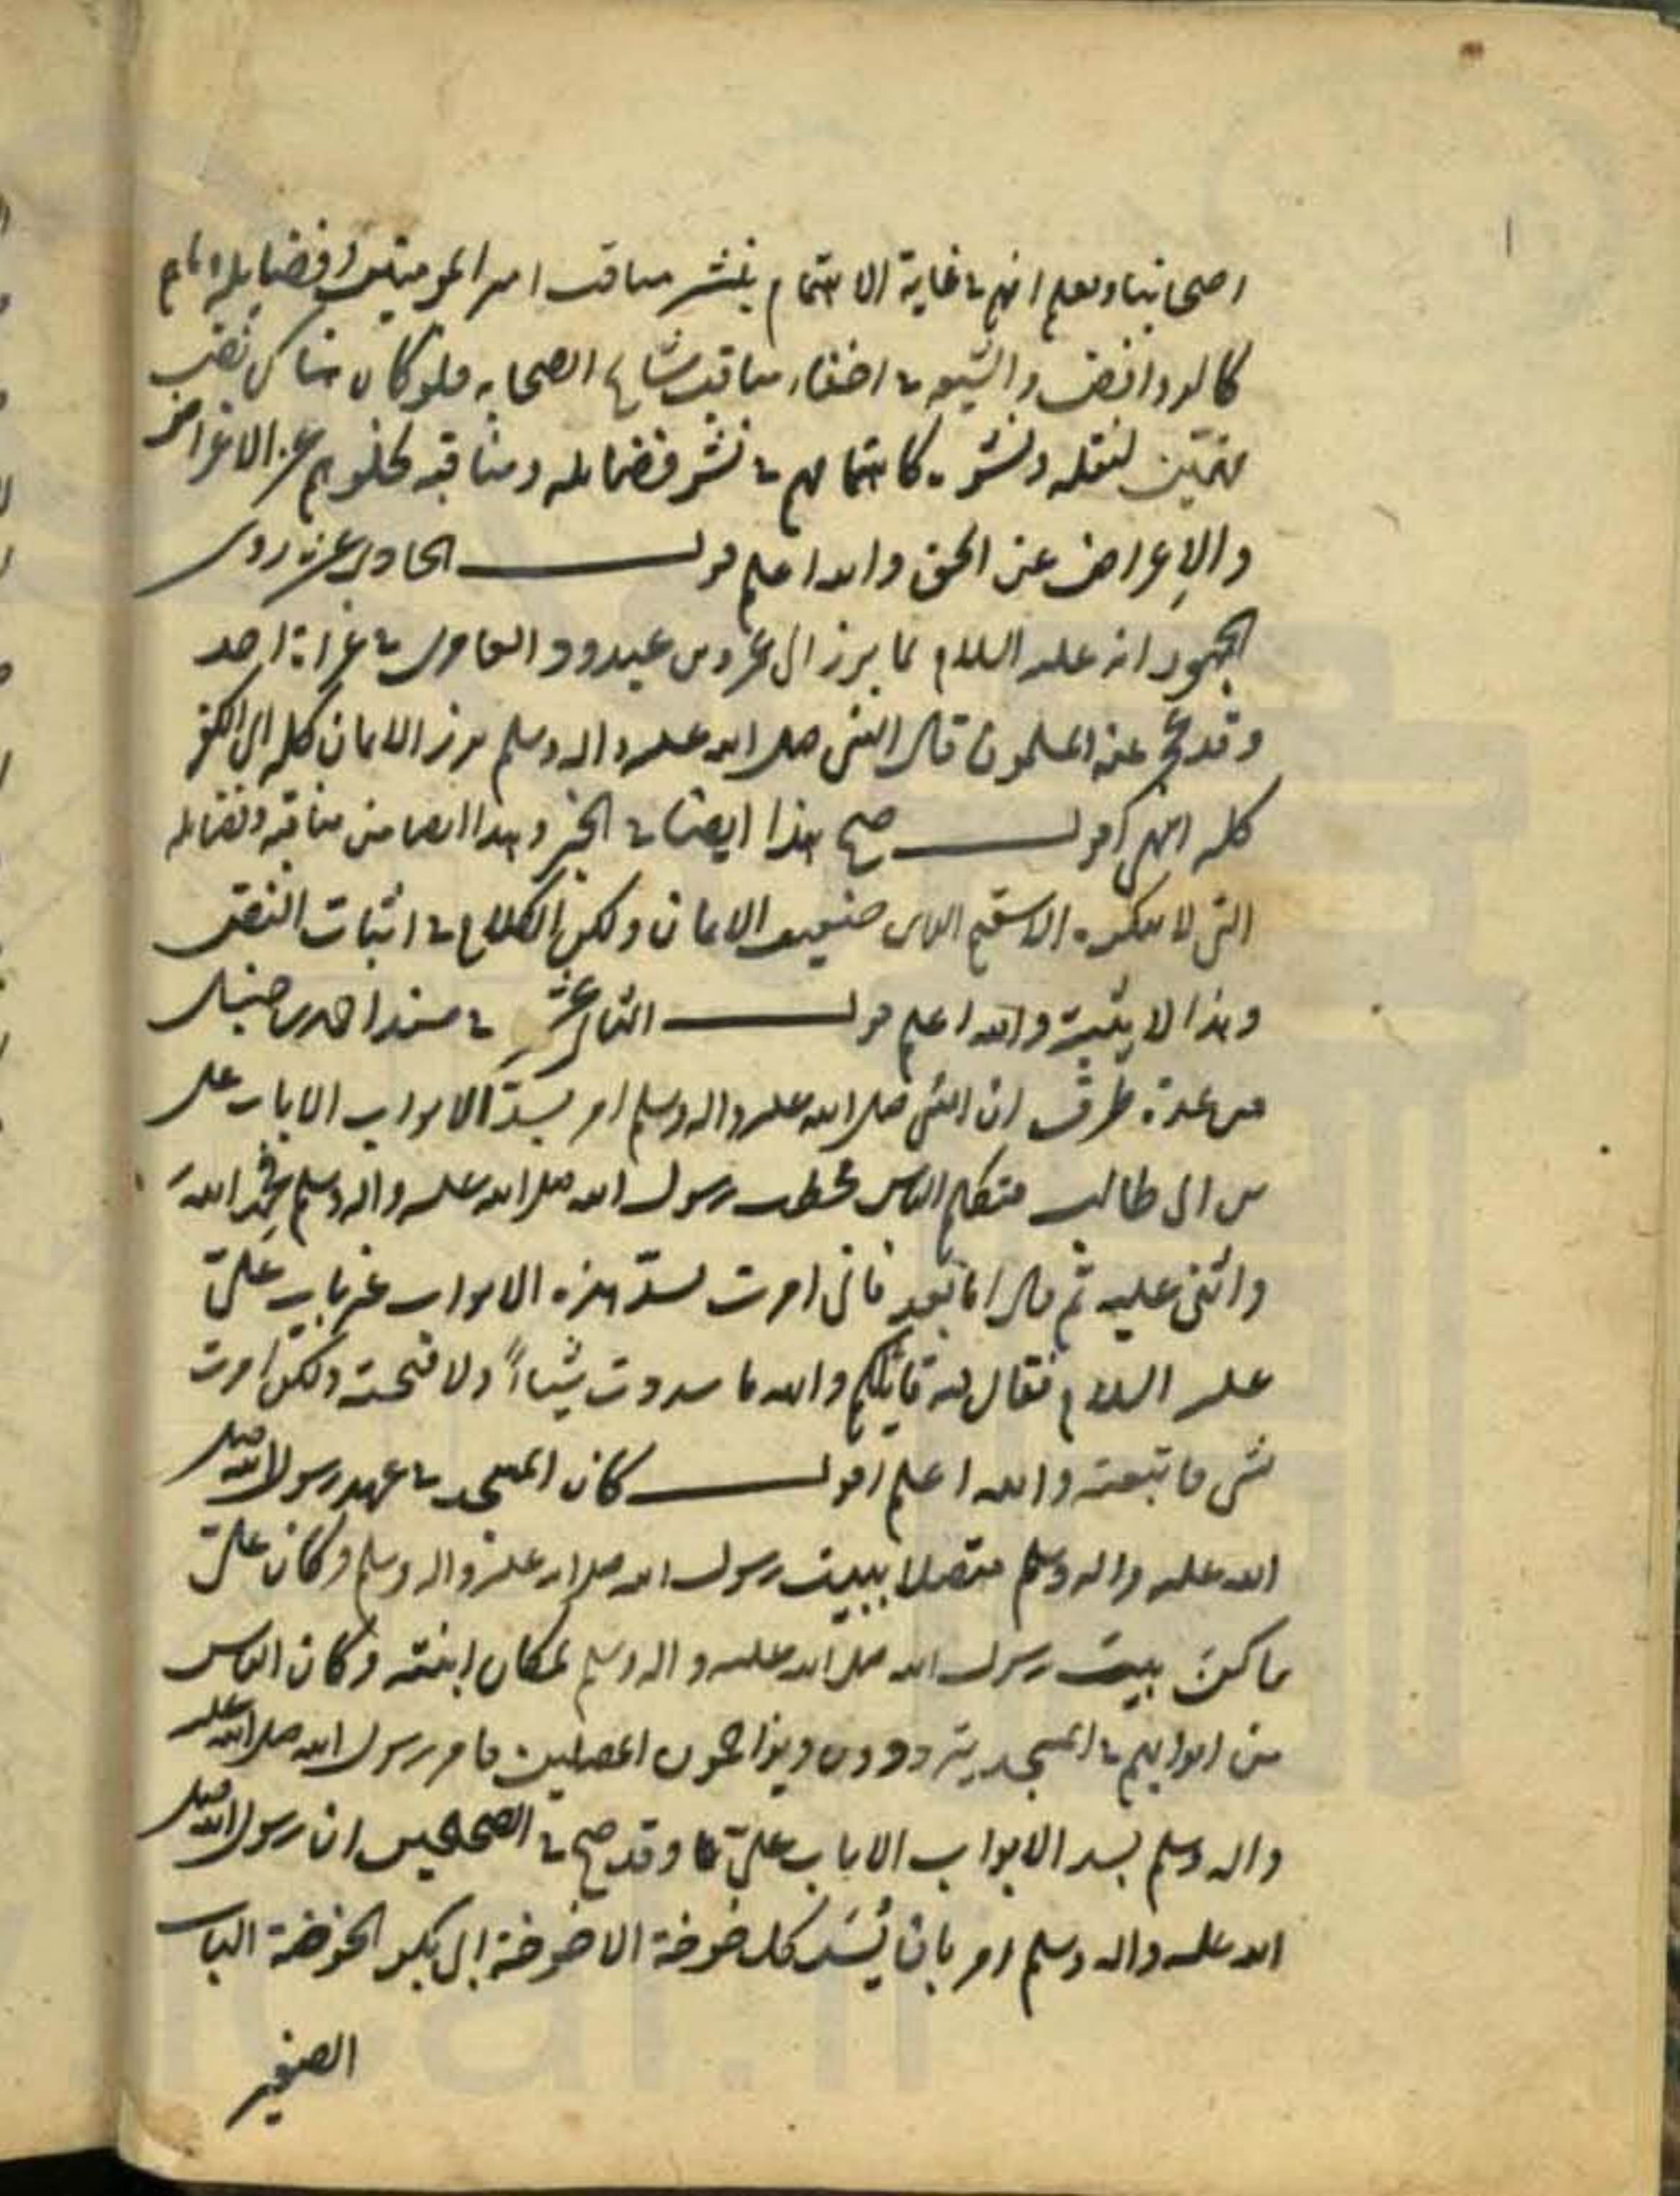 اصحابنا ويعلم انهم في غاية الاهتمام بنشر مناقب امير المومنين وفضايله
كالروافض والشيعة في اخفاء مناقب مشايخ الصحابه فلو كان هناك نص
مهتمين لنقله ونشره كاهتمامهم في نشر فضايله ومناقبه لخلوهم عن الاغراض
والاعراض عن الحق والله اعلم قوله الحادي عشر روى
الجمهور انه عليه السلام لما برز الى عمرو بن عبدود العامرى في غزاة احد
وقد عجز عنه المسلمون قال النبى صلى الله عليه واله وسلم برز الايمان كله الى الكفر
كله انتهى اقول صح هذا ايضا في الخبر وهذا ايضا من مناقبه وفضايله
التى لا ينكره الا سقيم الراى ضعيف الايمان ولكن الكلام في اثبات النص
وهذا لا يثبته والله اعلم قوله الثانى عشر في مسند احمد بن حنبل
من عدة طرق ان النبى صلى الله عليه واله وسلم امر بسدّ الابواب الا باب على
بن ابى طالب فتكلم الناس فخطب رسول الله صلى الله عليه واله وسلم فحمد الله
واثنى عليه ثم قال اما بعد فانى امرت بسدّ هذه الابواب غير باب علىّ
عليه السلام فقال فيه قايلكم والله ما سددت شيئاً ولا فتحته ولكن امرت
بشى فاتبعته والله اعلم اقول كان المسجد في عهد رسول الله صلى
الله عليه واله وسلم متصلا ببيت رسول الله صلى الله عليه واله وسلم وكان علىّ
ساكن بيت رسول الله صلى الله عليه واله وسلم لمكان ابنته وكان الناس
من ابوابهم في المسجد يترددون ويزاحمون المصلين فامر رسول الله صلى الله عليه
واله وسلم بسد الابواب الا باب علىّ وقد صح في الصحيحين ان رسول الله صلى
الله عليه واله وسلم امر بان يُسَد كل خوخة الا خوخة ابى بكر والخوخة الباب
الصغير